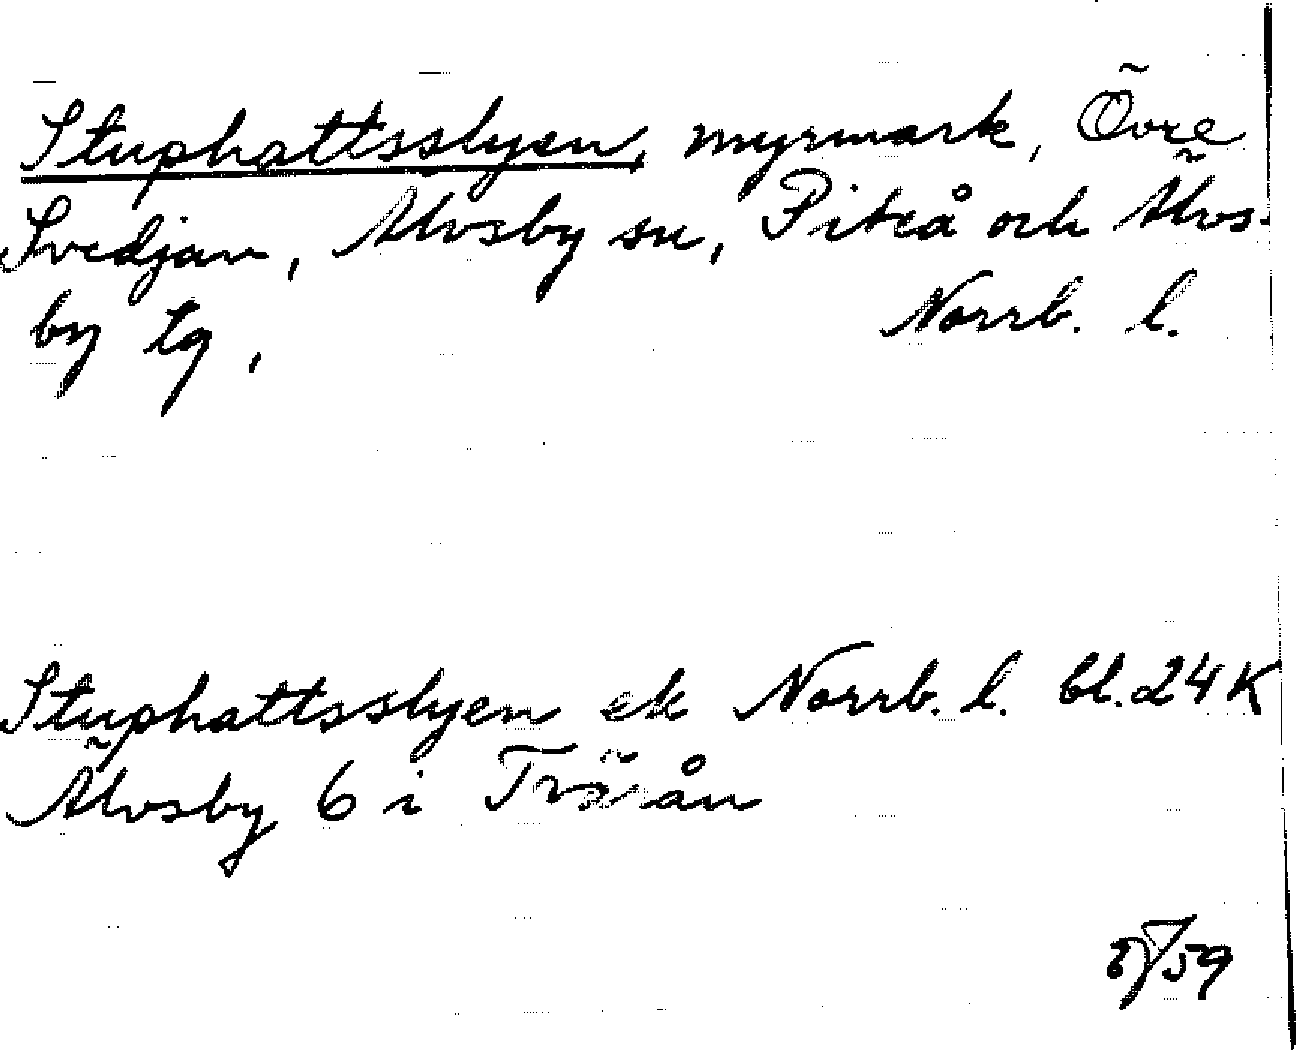 Stuphattsslyen, myrmark, Övre
Svedjan, Älvsby sn, Piteå och Älvs-
by tg, Norrb. l.
Stuphattsslyen ek Norrb. l. bl. 24 K
Älvsby 6 i Träsån